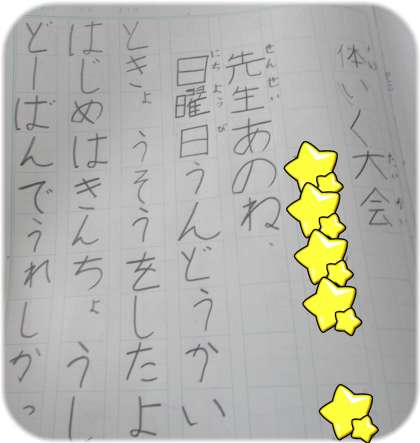 体いく大会
先生あのね、
日曜日うんどうかい
ときょうそうをしたよ
はじめはきんちょうし
ど一ばんでうれしかっ